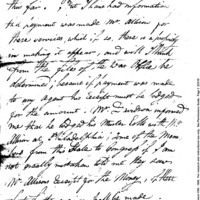 this far. I have had information
that payment was made Mr. Allison for
these services, which if so, there is a propriety
in making it appear, and will I think
from the files of the War Office be
determined; because if payment was made
to any agent his receipt must be lodged
for the amount. Mr. Davidson informed
me that he lodged his Muster Roll with Mr.
Allison at Philadelphia; some of the Mem
bers from this State to Congress if I am
not greatly mistaken told me they saw
Mr. Allisons receipt for the Money, if there
shall be made